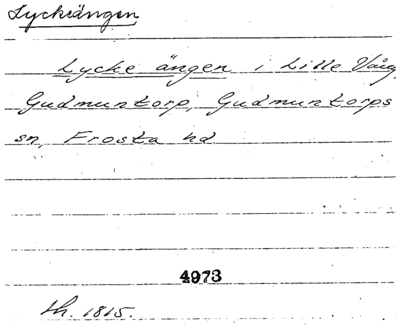 Lyckeängen
Lycke ängen i Lille Vång,
Gudmuntorp, Gudmuntorps
sn, Frosta hd
4973
th. 1815.